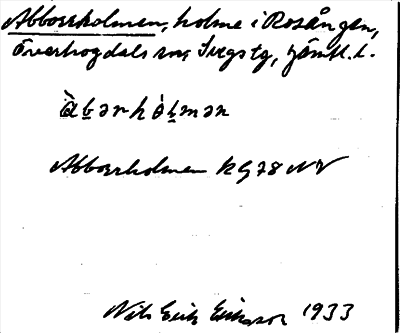 Abborrholmen, holme i Rosången,
Överhogdals sn, Svegs tg, Jämtl. l.
Abborrholmen kg 78 NV
Nils Erik Eriksson 1933